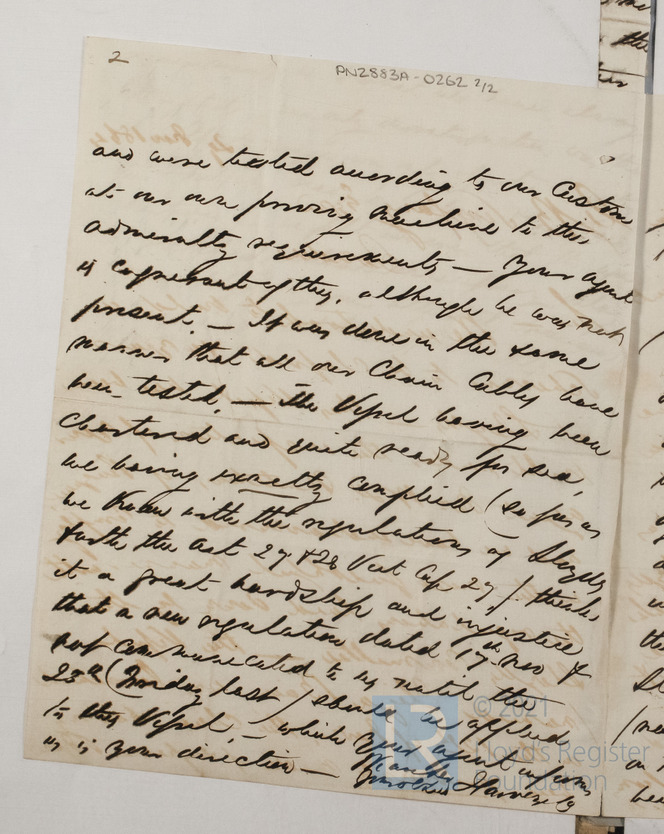 2
PN2883A-0262 2/2
and were tested according to our Custom
at our own proving machine to the
admiralty requirements — Your agent
is cognizant of this, although he was not
present. — It was done in the same
manner that all our Chain Cables have
been tested. — The Vessel having been
chartered and quite ready for sea,
we having exactly complied (so far as
we know with the regulations of Lloyds
& with the Act 27 & 28 Vict Cap 27) think
it a great hardship and injustice
that a new regulation dated 17th Nov &
not communicated to us until the
25th (Friday last) should be applied
to this Vessel, — which your agent informs
us is your direction —
Harvey & Co
© 2021
LR
Lloyd's Register
Foundation